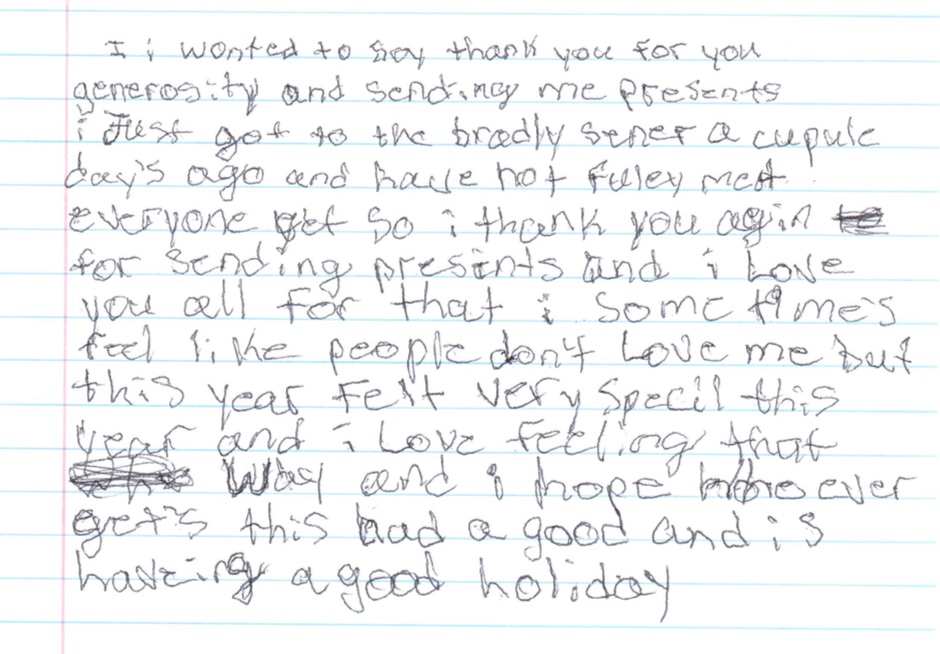 I i wonted to say thank you for you
generosity and sending me presents
i Just got to the bradly sener a cupule
day's ago and have not fuley meat
everyone yet so i thank you agin
for sending presents and i Love
you all for that i some time's
feel like people don't Love me but
this year Felt very Specil this
year and i Love feeling that
Way and i hope who ever
get's this had a good and is
haveing a good holiday